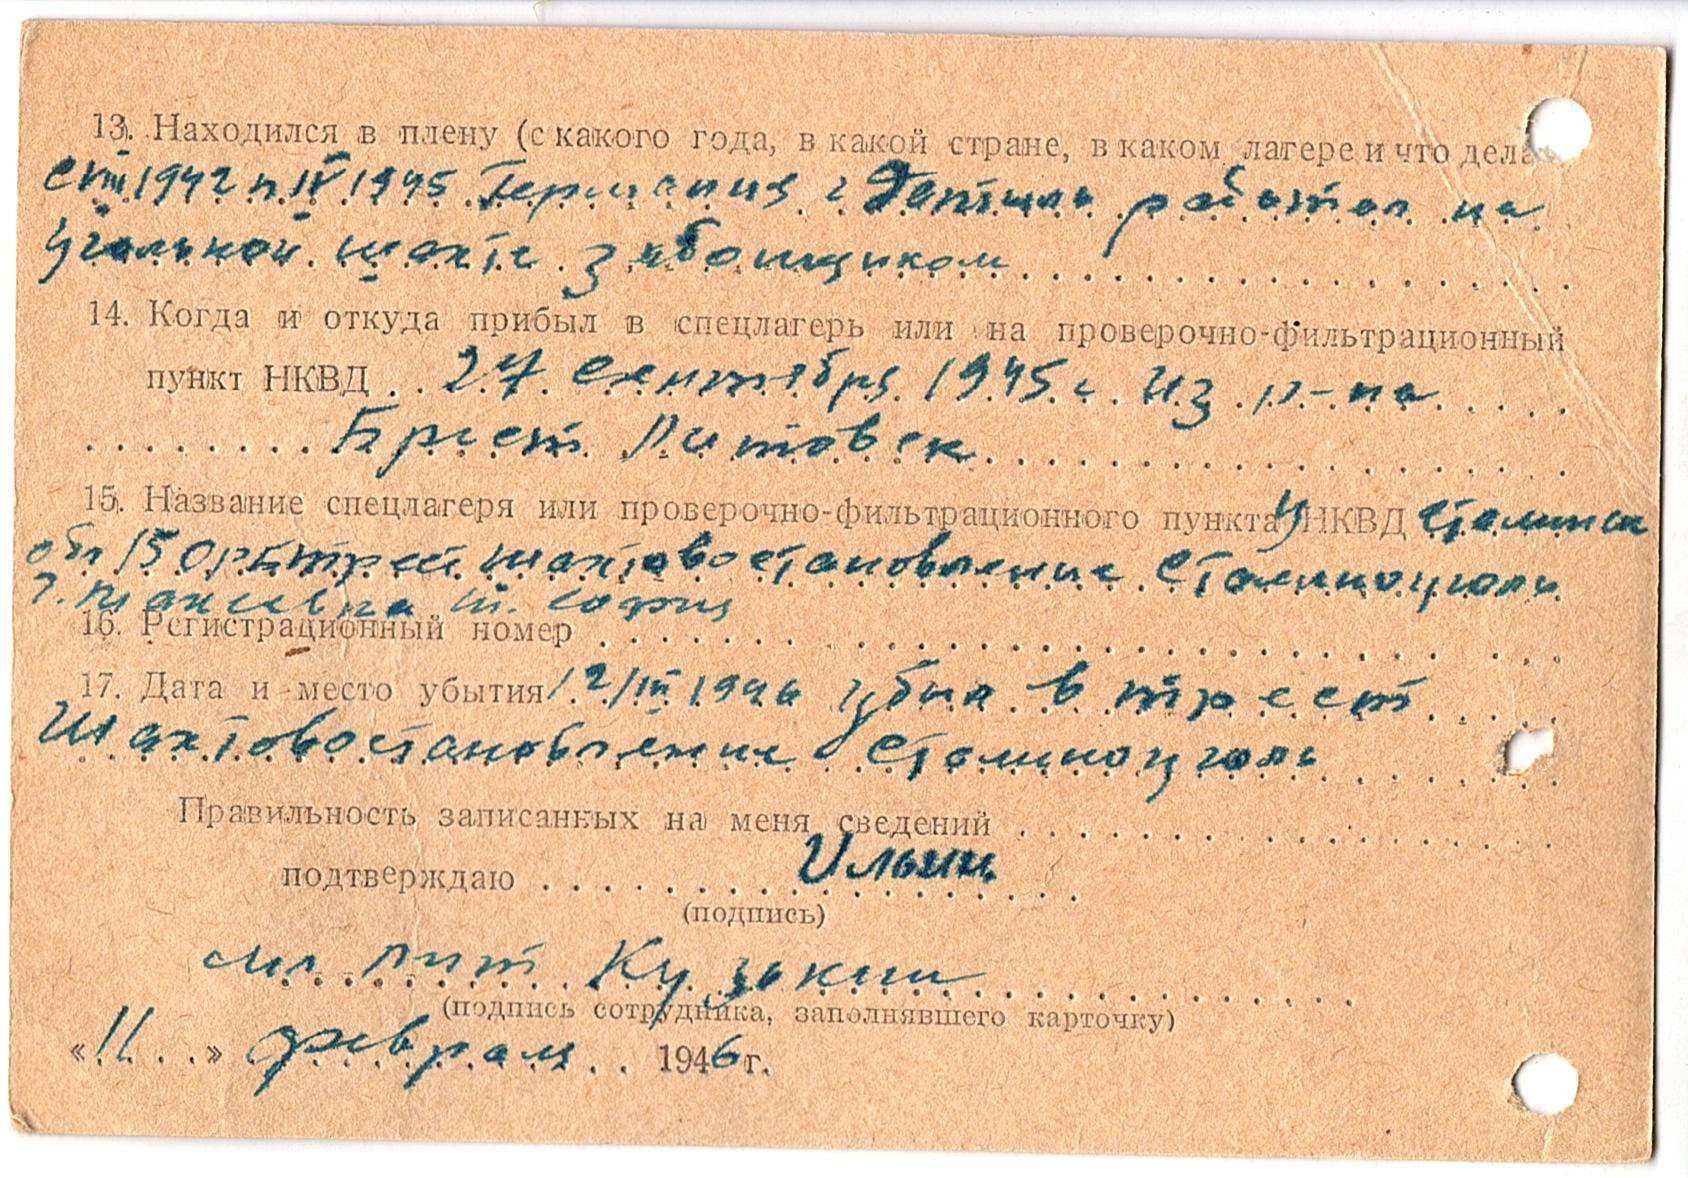 13. Находился в плену (с какого года, в какой стране, в каком лагере и что дела
с VIII 1942 п IV 1945 Германия г работал на
угольной шахте забоищиком
14. Когда и откуда прибыл в спецлагерь или на проверочно-фильтрационный
пункт НКВД .. 27 сентября 1945 г из р-на
Брест Литовск
15. Название спецлагеря или проверочно-фильтрационного пункта У НКВД Сталинск
обл 15 ОРБ трест шахтовостановление Сталиноуголь
г. Макеевка ш. София
16. Регистрационный номер
17. Дата и место убытия 12/III 1946 убыл в трест
Шахтовостановление Сталиноуголь
Правильность записанных на меня сведений
подтверждаю Ильин
(подпись)
мл лит Кузькин
(подпись сотрудника, заполнявшего карточку)
«11» феврал 1946 г.